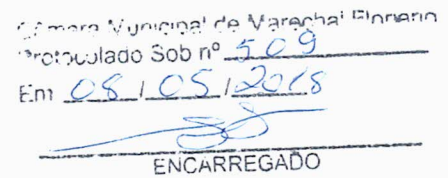 Câmara Municipal de Marechal Floriano
Protocolado Sob nº 509
Em 08/05/2018
ENCARREGADO